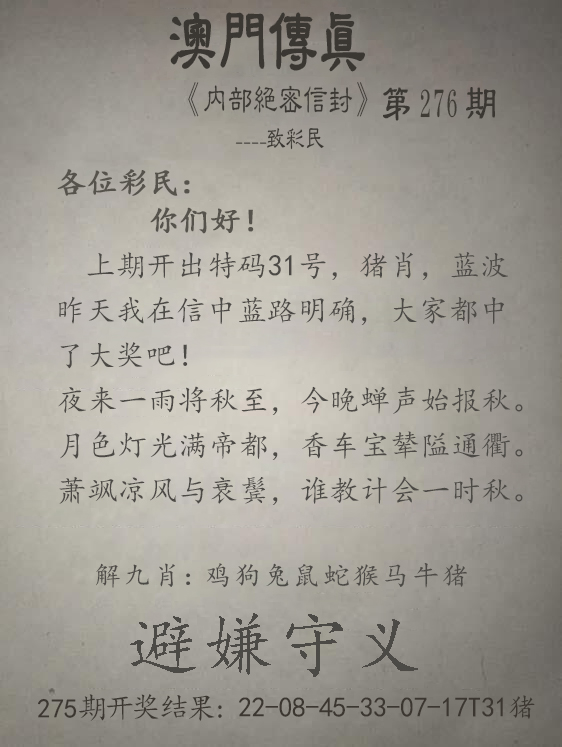 澳門傳真
《内部絕密信封》第276期
----致彩民
各位彩民：
你们好！
上期开出特码31号，猪肖，蓝波
昨天我在信中蓝路明确，大家都中
了大奖吧！
夜来一雨将秋至，今晚蝉声始报秋。
月色灯光满帝都，香车宝辇隘通衢。
萧飒凉风与衰鬓，谁教计会一时秋。
解九肖：鸡狗兔鼠蛇猴马牛猪
避嫌守义
275期开奖结果：22-08-45-33-07-17T31猪